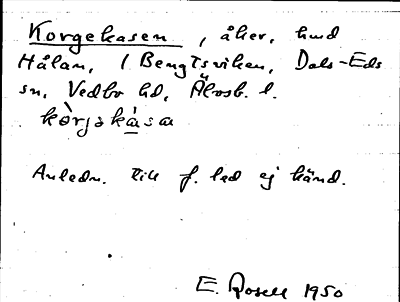 Korgekasen, åker, hmd
Hålan, / Bengtsviken, Dals-Eds
sn, Vedbo hd, Älvsb. l.
kòrjəkàsa
Anledn. till f. led ej känd.
E. Rosell 1950